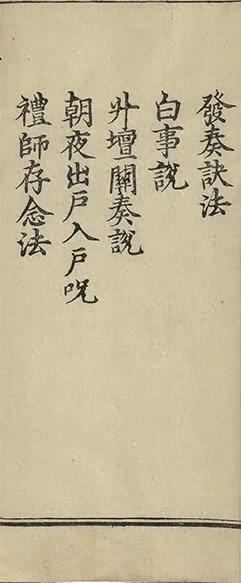 發奏訣法
白事說
升壇關奏說
朝夜出戶入戶呪
禮師存念法